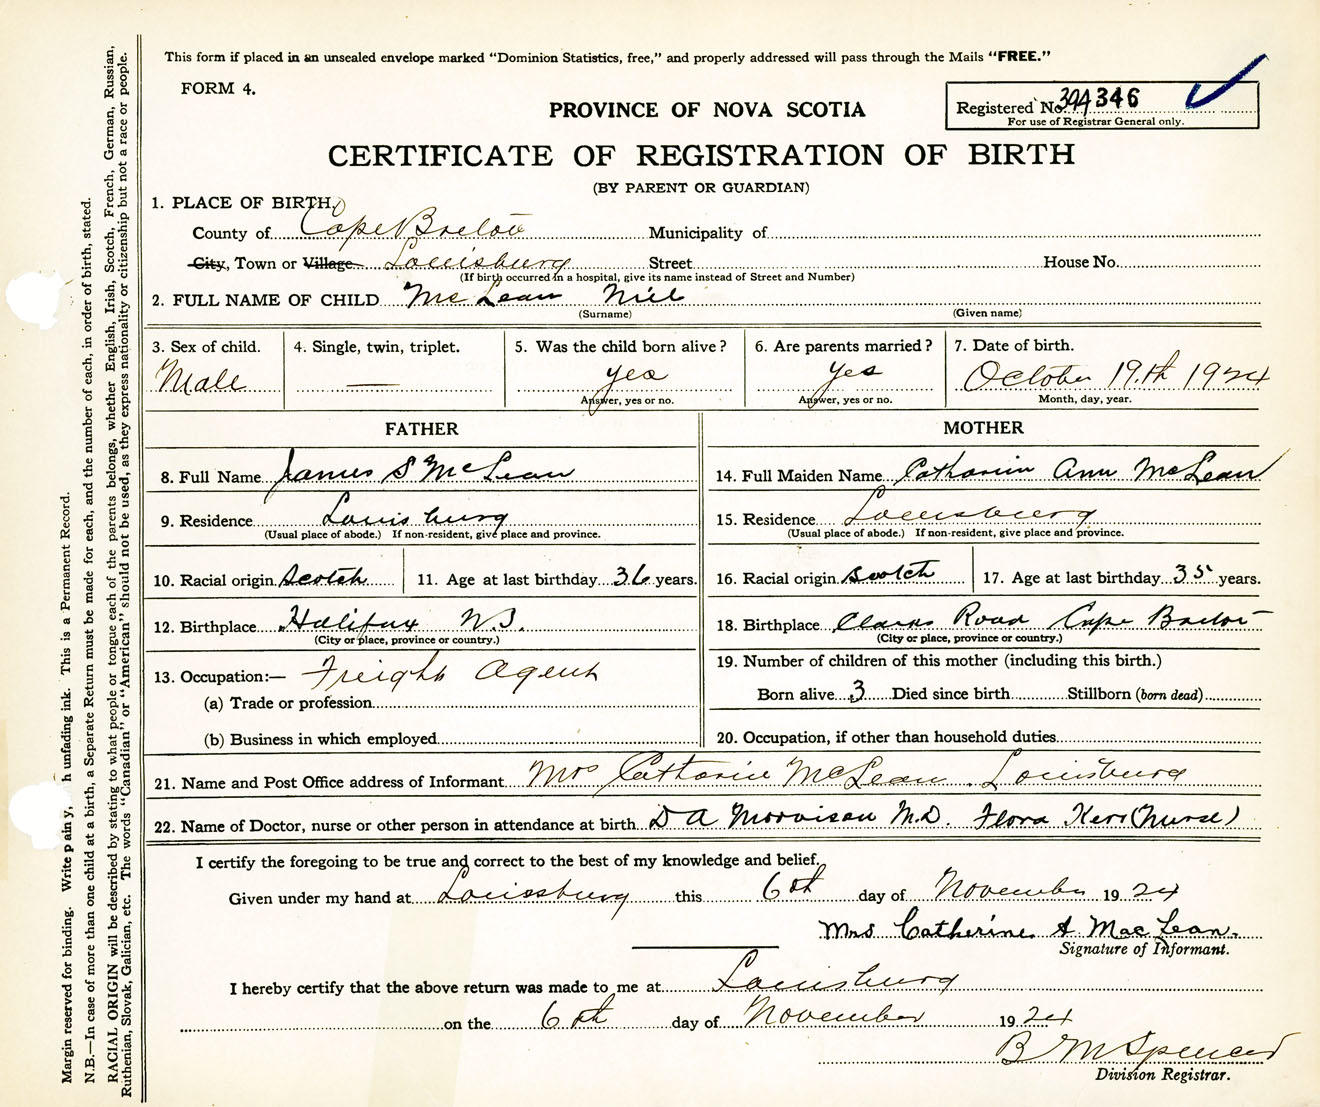 This form if placed in an unsealed envelope marked “Dominion Statistics, free,” and properly addressed will pass through the Mails “FREE.”
FORM 4.
PROVINCE OF NOVA SCOTIA
Registered No. 346
For use of Registrar General only.
CERTIFICATE OF REGISTRATION OF BIRTH
(BY PARENT OR GUARDIAN)
1. PLACE OF BIRTH.
County of Cape Breton Municipality of
City, Town or Village Louisburg Street House No.
(If birth occurred in a hospital, give its name instead of Street and Number)
2. FULL NAME OF CHILD McLean Niel
(Surname) (Given name)
3. Sex of child. 4. Single, twin, triplet. 5. Was the child born alive? 6. Are parents married? 7. Date of birth.
Male — yes yes October 19th 1924
Answer, yes or no. Answer, yes or no. Month, day, year.
FATHER MOTHER
8. Full Name James S McLean 14. Full Maiden Name Catharine Ann McLean
9. Residence Louisburg 15. Residence Louisburg
(Usual place of abode.) If non-resident, give place and province. (Usual place of abode.) If non-resident, give place and province.
10. Racial origin Scotch 11. Age at last birthday 36 years. 16. Racial origin Scotch 17. Age at last birthday 35 years.
12. Birthplace Halifax N.S. 18. Birthplace Clarks Road Cape Breton
(City or place, province or country.) (City or place, province or country.)
13. Occupation:— Freight Agent 19. Number of children of this mother (including this birth.)
(a) Trade or profession Born alive 3 Died since birth Stillborn (born dead)
(b) Business in which employed 20. Occupation, if other than household duties
21. Name and Post Office address of Informant Mrs Catharine McLean. Louisburg
22. Name of Doctor, nurse or other person in attendance at birth D A Morrison M.D. Flora Kerr (Nurse)
I certify the foregoing to be true and correct to the best of my knowledge and belief.
Given under my hand at Louissburg this 6th day of November 1924
Mrs Catherine A MacLean.
Signature of Informant.
I hereby certify that the above return was made to me at Louisburg
on the 6th day of November 1924
B M Spencer
Division Registrar.
Margin reserved for binding. Write plainly, with unfading ink. This is a Permanent Record.
N.B.—In case of more than one child at a birth, a Separate Return must be made for each, and the number of each, in order of birth, stated.
RACIAL ORIGIN will be described by stating to what people or tongue each of the parents belongs, whether English, Irish, Scotch, French, German, Russian,
Ruthenian, Slovak, Galician, etc. The words “Canadian” or “American” should not be used, as they express nationality or citizenship but not a race or people.